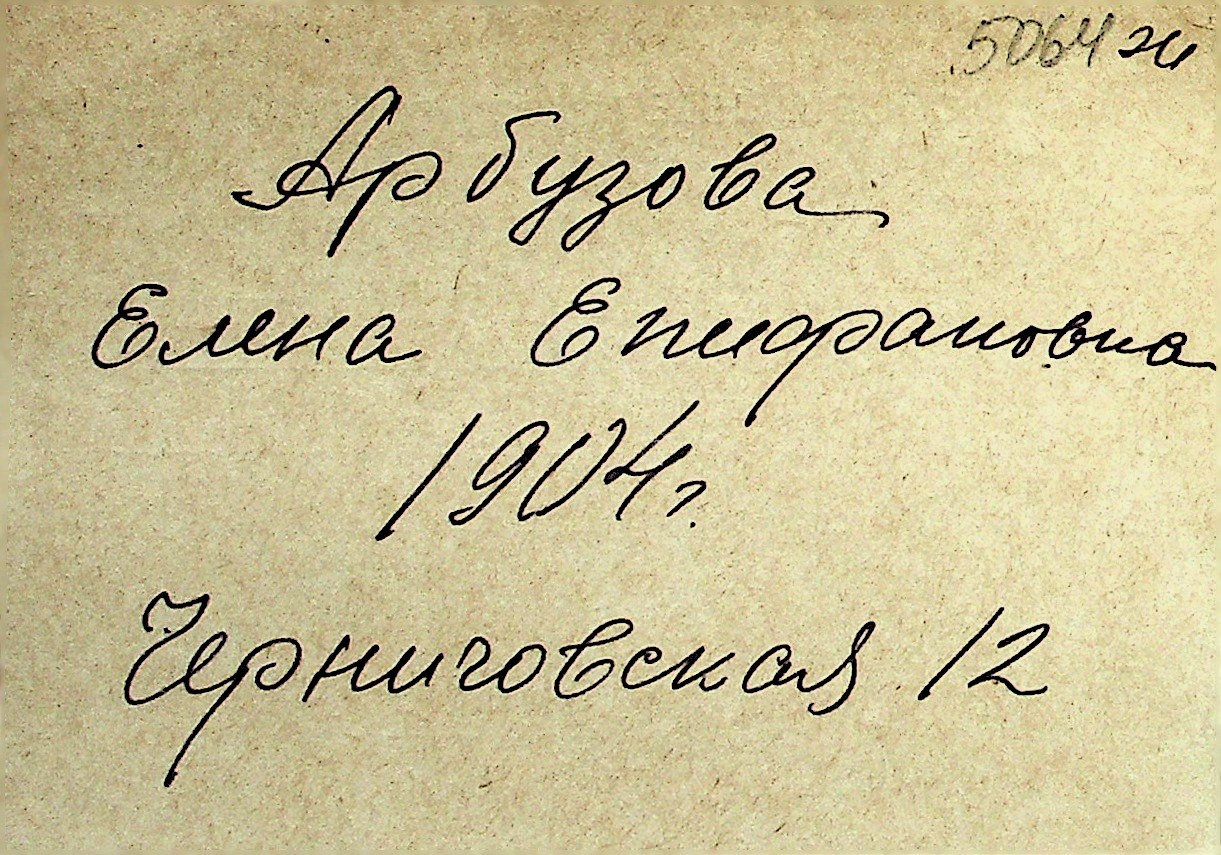 5064 ж
Арбузова
Елена Епифановна
1904 г.
Черниговская 12